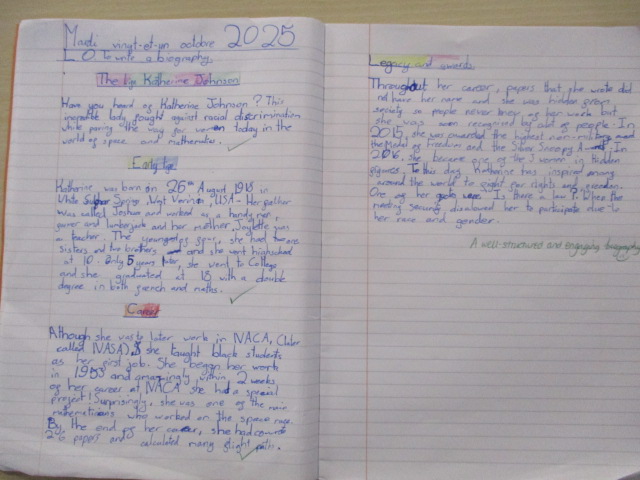 Mardi vingt-et-un octobre 2025
L O To write a biography.
The life Katherine Johnson
Have you heard of Katherine Johnson? This
lady fought against racial discrimination
while paving the way for women today in the
world of space and mathematics.
Early life
Katherine was born on 26th August 1918 in
White Springs, West USA. Her father
was called Joshua and worked as a handy man,
and and her mother, Joylette was
a teacher. The youngest of four, she had
sisters and two brothers and she went highschool
at 10. Only 5 years later, she went to College
and she graduated at 18 with a double
degree in both french and maths.
Career
Although she was to later work in NACA, (later
called NASA), she taught black students
as her first job. She began her work
in 1953 and amazingly, within 2 weeks
of her career at NACA she had a special
project! Surprisingly, she was one of the main
mathematicians who worked on the space race.
By the end of her career, she had
26 papers and calculated many flight paths.
Legacy and awards
Throughout her career, papers that she wrote did
not have her name and she was hidden from
society so people never knew of her work but
she was soon recognised by of people. In
2015, she was awarded the highest
the Medal of Freedom and the Silver Snoopy In
2016, she became one of the 3 women in Hidden
figures. To this day, Katherine has inspired many
around the world to fight for rights and freedom.
One of her Is there a law? When the
meeting disallowed her to participate due to
her race and gender.
A well-structured and engaging biography